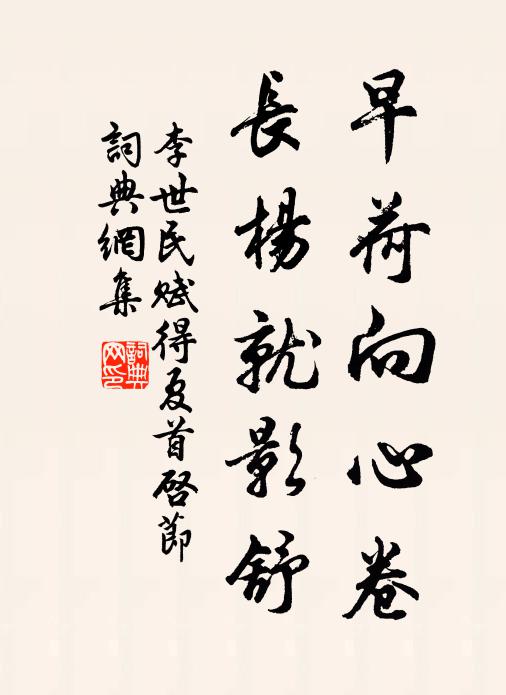 早荷向心卷
長楊就影舒
李世民賦得夏首啓節
詞典網集
詞典網印